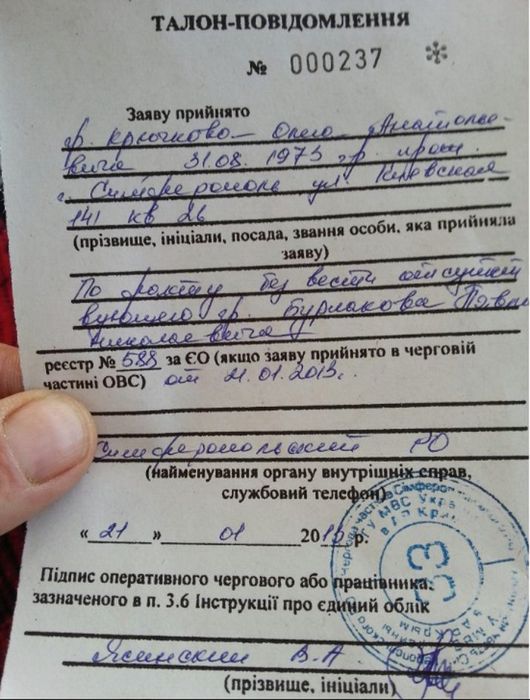 ТАЛОН-ПОВІДОМЛЕННЯ
№ 000237
Заяву прийнято
гр. Крючково Олега Анатолье-
вича 31.08.1973 гр. прож.
г. Симферополь ул. Киевская
141 кв 26
(прізвище, ініціали, посада, звання особи, яка прийняла
заяву)
По факту без вести отсутст
вующего гр. Бурлакова Павла
Николаевича
реєстр № 588 за ЄО (якщо заяву прийнято в черговій
частині ОВС) от 21.01.2013г.
Симферопольский РО
(найменування органу внутрішніх справ,
службовий телефон)
« 21 » 01 2013 р.
Підпис оперативного чергового або працівника,
зазначеного в п. 3.6 Інструкції про єдиний облік
Ясинский В.А
(прізвище, ініціали)
33